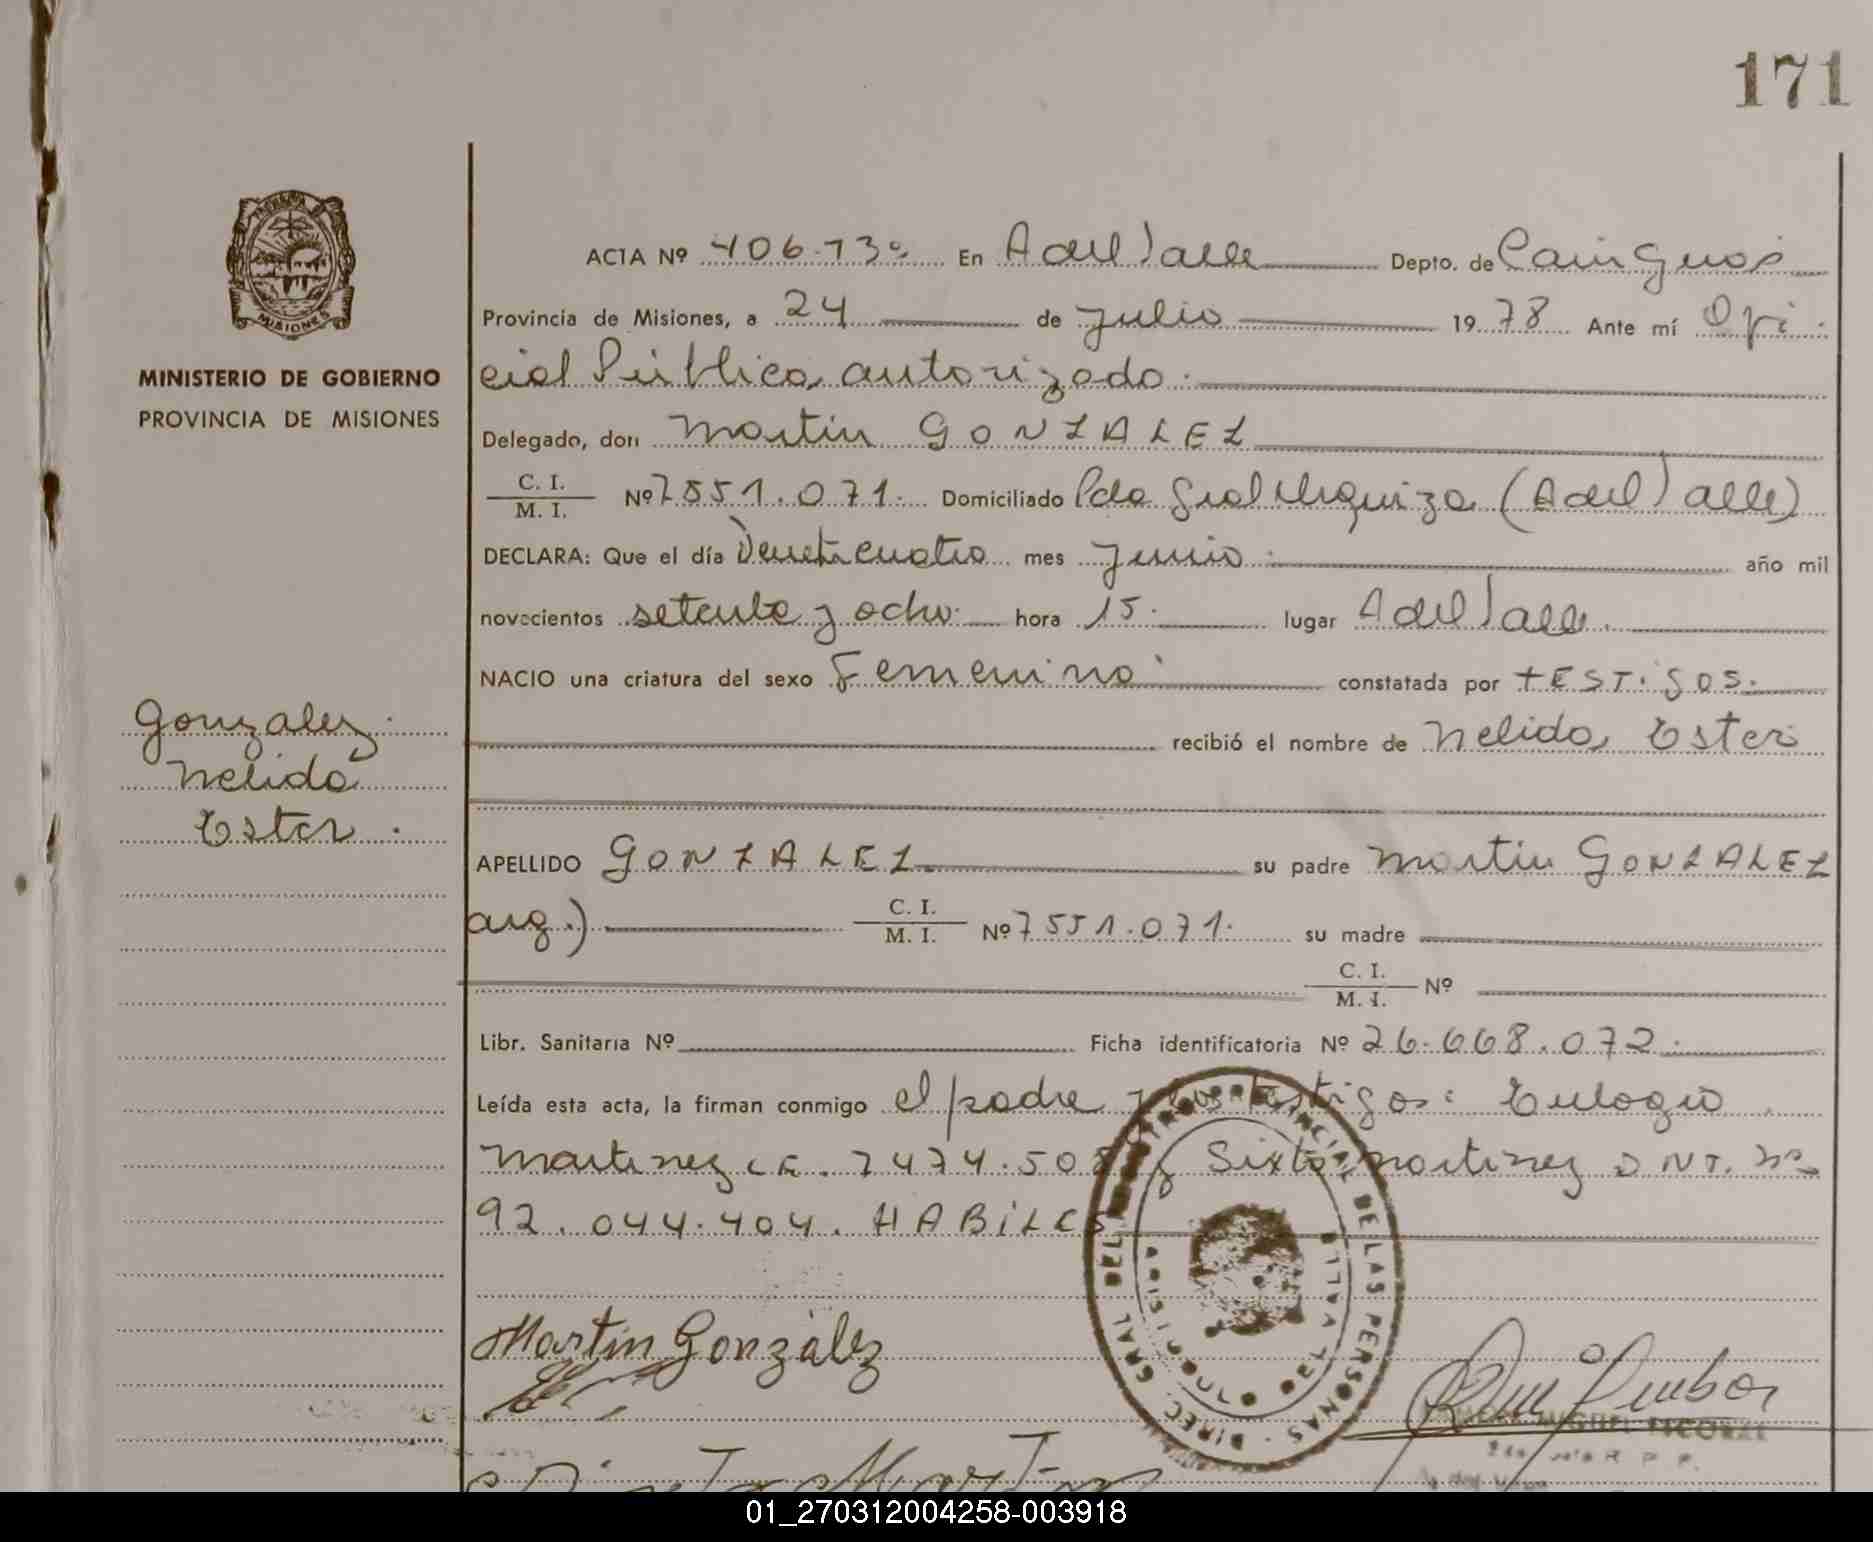 171
MISIONES
MINISTERIO DE GOBIERNO
PROVINCIA DE MISIONES
Gonzalez
Nelida
Ester.
ACTA Nº 406-13º En A del Valle Depto. de Cainguas
Provincia de Misiones, a 24 de Julio 1978 Ante mí Ofi
cial Público autorizado.
Delegado, don Martin GONZALEZ
C. I. / M. I. Nº 7551.071. Domiciliado Pdo Gral Urquiza (A del Valle)
DECLARA: Que el día Veinticuatro mes Junio año mil
novecientos setenta y ocho hora 15. lugar A del Valle.
NACIO una criatura del sexo Femenino constatada por TESTIGOS.
recibió el nombre de Nelida Ester
APELLIDO GONZALEZ su padre Martin GONZALEZ
arg.) C. I. / M. I. Nº 7551.071. su madre
C. I. / M. I. Nº
Libr. Sanitaria Nº Ficha identificatoria Nº 26.668.072.
Leída esta acta, la firman conmigo el padre y los testigos: Eulogio
Martinez 7474.508 y Sixto Martinez DNI. Nº
92.044.404. HABILES
Martin González
DIREC. GRAL. DEL REGISTRO PROVINCIAL DE LAS PERSONAS
DEL VALLE
MISIONES
Sixto Martinez
01_270312004258-003918